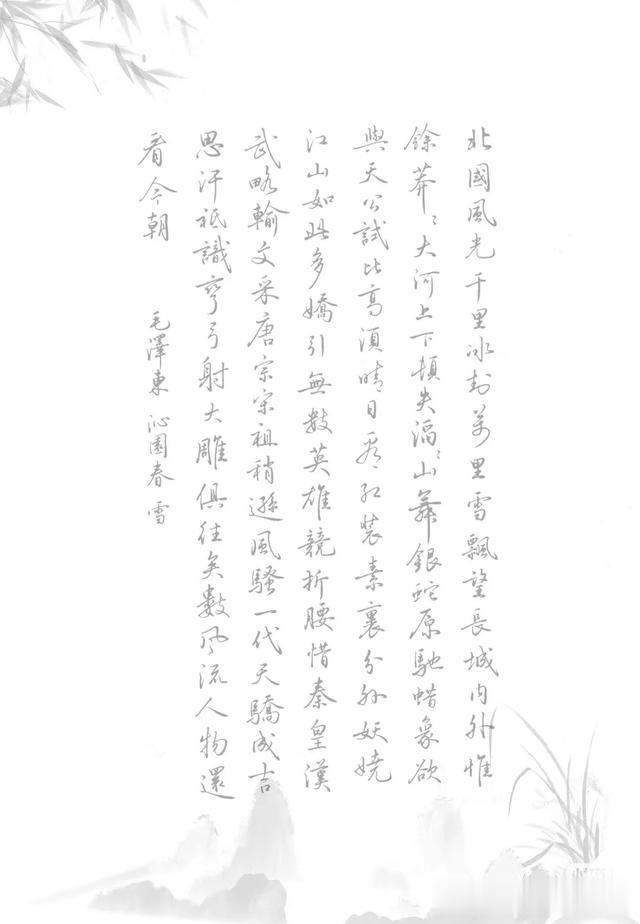 北國風光千里冰封萬里雪飄望長城內外惟
餘莽〻大河上下頓失滔〻山舞銀蛇原馳蜡象欲
與天公試比高須晴日看紅裝素裹分外妖嬈
江山如此多嬌引無數英雄競折腰惜秦皇漢
武略輸文采唐宗宋祖稍遜風騷一代天驕成吉
思汗祗識彎弓射大雕俱往矣數風流人物還
看今朝
毛澤東 沁園春 雪